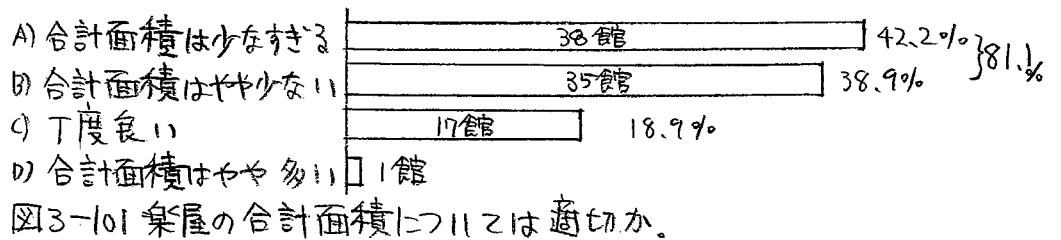 A) 合計面積は少なすぎる 38館 42.2% }81.1%
B) 合計面積はやや少ない 35館 38.9%
C) 丁度良い 17館 18.9%
D) 合計面積はやや多い 1館
図3-101 楽屋の合計面積については適切か。